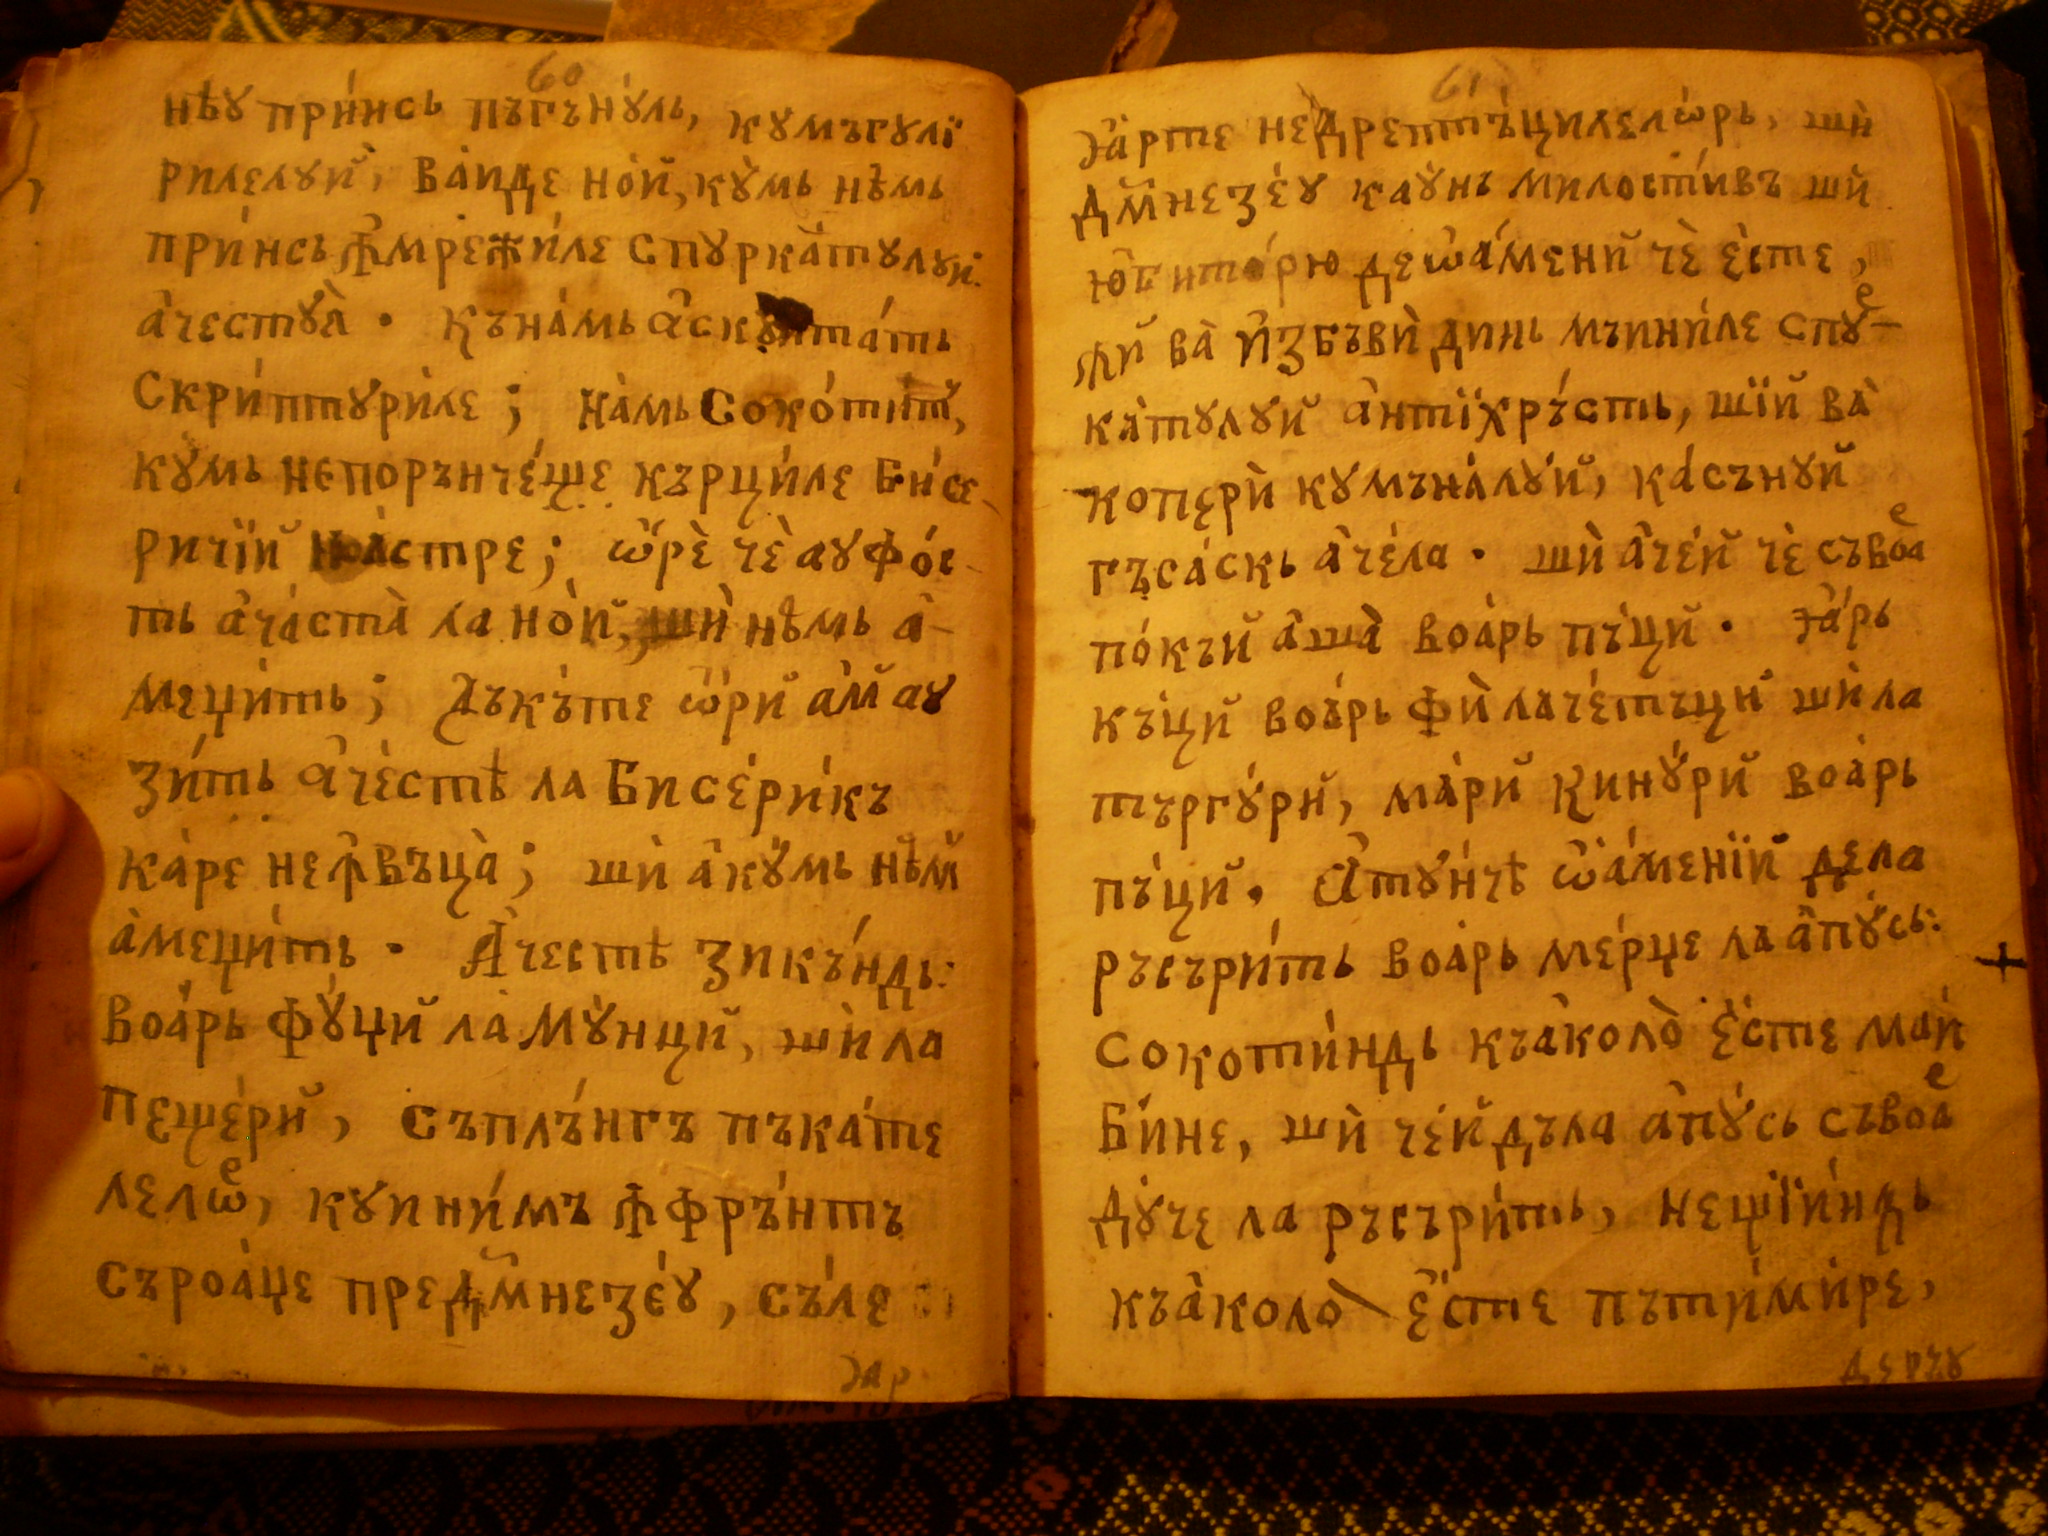 60
нѣꙋ при́нсь пъгъну́ль, кумъгулї
рилелуй, ва́иде но́й, ку́мь нѣмь
при́нсь ꙟ҆мрежи́ле спурка́тулуй
а҆честу́л · къна́мь а҆ску тать
Скри́птури́ле ; на́мь Соко́тит,
ку́мь непорънче́ще кърци́ле Би́се-
ричїй но́астре; ѡ҆рѐ чѐ ау фо́с-
ть а҆ча́ста̀ ла но́й, шѝ нѣмь а҆-
меци́ть ; Дъкъ́те ѡ҆́рй а҆м ау
зи́ть а҆че́стѣ ла Бисе́ри́къ
ка́ре неꙟвъца̀; шѝ а҆ку́мь нѣм
а҆меџи́ть · А҆честѣ зикъ́ндь:
воа́рь фу́џй ла Му́нцй, шѝ ла
пеще́рй, съплъ́нгъ пъка́те
лелѡр, куини́мъ ꙟфръ́нтъ
съроа́џе предмнезе́у, съ́ле
Ꙗр
61
Ꙗ҆́рте недрептъ́цилелѡ́рь, шѝ
дмнезе́у кау́нь милости́въ шѝ
ю҆бито́рю деѡ҆а́менй чѐ е҆́сте,
ꙟй ва̀ и҆збъвѝ динь мъини́ле спур-
ка́тулуй а҆нтїхръ́сть, шїй ва̀
коперѝ кумъна́луй, ка́сънуй
гъса́скь а҆че́ла · шѝ а҆че́й чѐ съвоар
по́къй а҆ша̀ воа́рь пъ́цй · Ꙗ҆́рь
къ́цй воъ́рь фѝ лаче́тъцй шѝ ла
търгу́рй, ма́рй кину́рй воа́рь
пъ́цй. А҆ту́нчѣ ѡ҆а́менїй дела
ръсъри́ть воа́рь ме́рџе ла а҆пу́сь:
сокоти́ндь къа҆коло̀ е҆́сте май
Би́не, шѝ че́й дъла а҆пу́сь съвоар
ду́че ла ръсъри́ть, нещїи́ндь
къа҆коло̀ е҆́сте пъти́ми́ре,
деръу